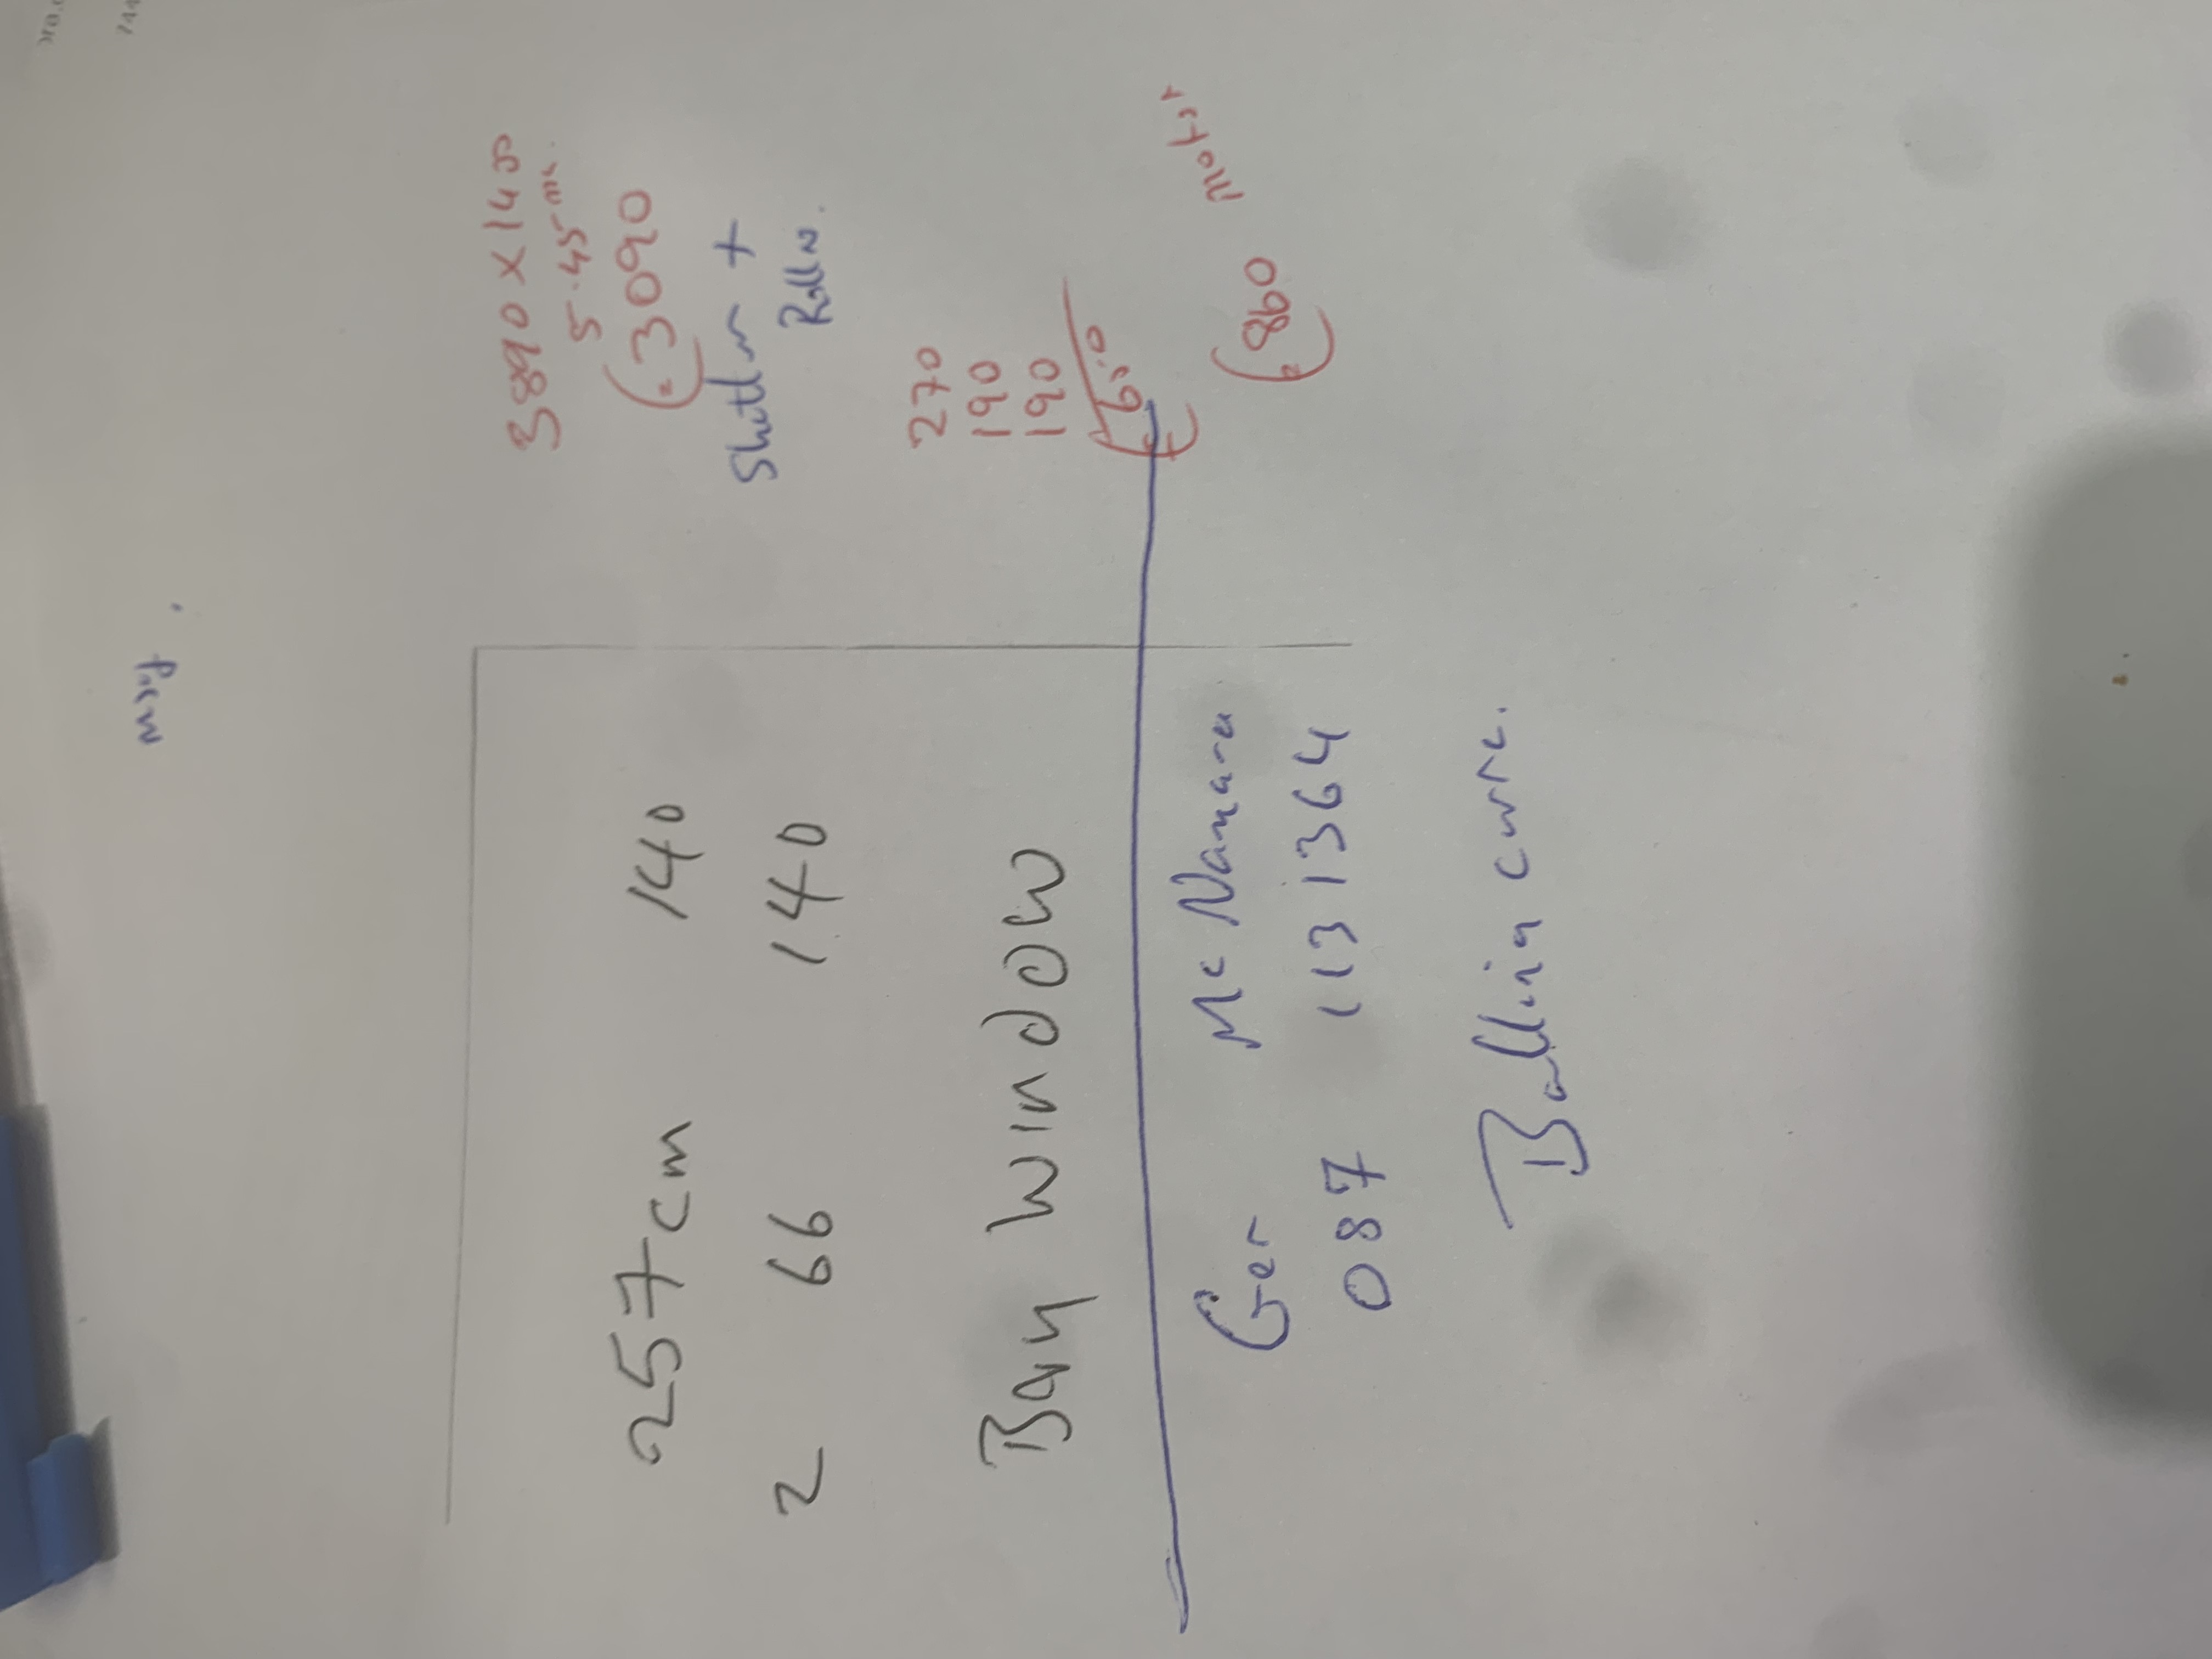 3890 x 1400
5.45 m²
€3090
Shutter +
Roller.
257cm 140
2 66 140
270
190
190
€650
Bay Window
Motor
€860
Ger Mc Namara
087 1131364
Ballina curra.